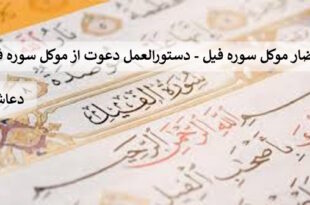 ضار موکل سوره فیل - دستورالعمل دعوت از موکل سوره ف
دعاش
سورة الفيل
الله الرحمن الرحيم
الفيل